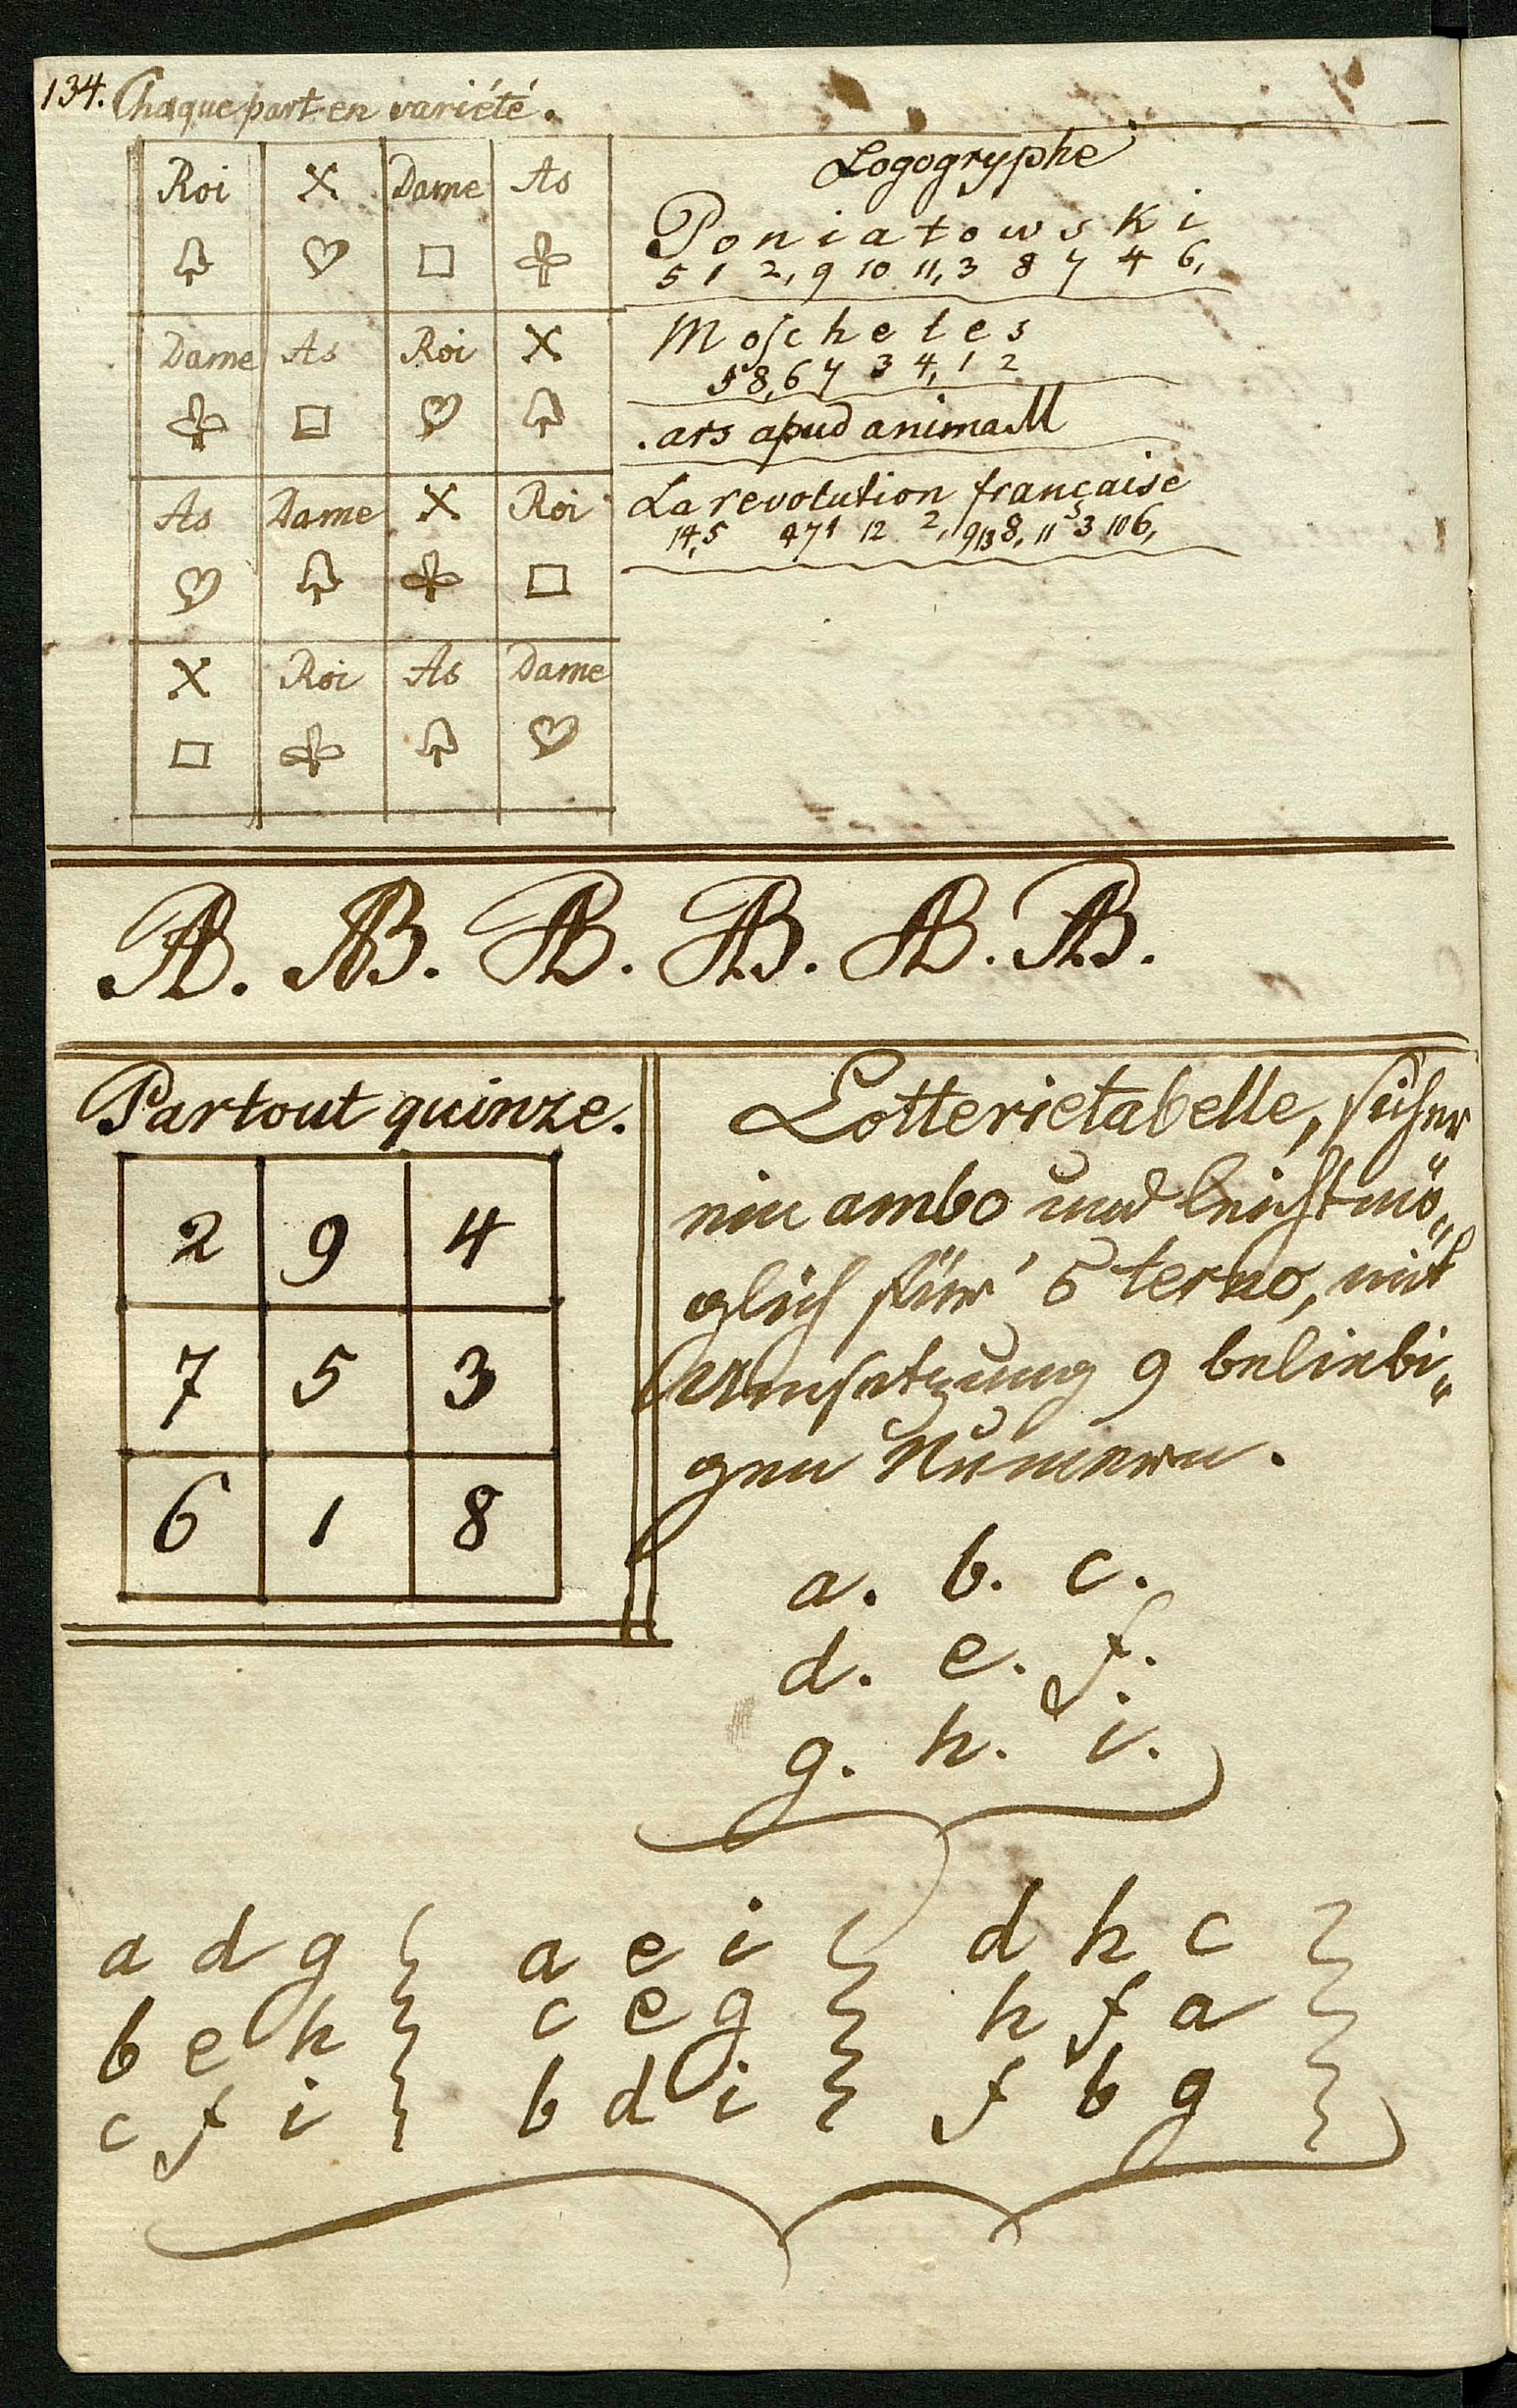 134. Chaque part en variété.
Roi X Dame As
♤ ♡ □ ♧
Dame As Roi X
♧ □ ♡ ♤
As Dame X Roi
♡ ♤ ♧ □
X Roi As Dame
□ ♧ ♤ ♡
Logogryphe
Poniatowski
5 1 2, 9 10 11, 3 8 7 4 6,
Moscheles
5 8, 6 7 3 4, 1 2
.ars apud animaM
La revolution française
14, 5 4 7 1 12 2, 9 13 8, 11 3 10 6,
AB. AB. AB. AB. AB. AB.
Partout quinze.
2 9 4
7 5 3
6 1 8
Lotterietabelle, sicher
ein ambo und leicht mö„
glich für 5 terno, mit
Umsetzung 9 beliebi„
gen Numern.
a. b. c.
d. e. f.
g. h. i.
a d g } a e i } d h c }
b e h } c e g } h f a }
c f i } b d i } f b g }